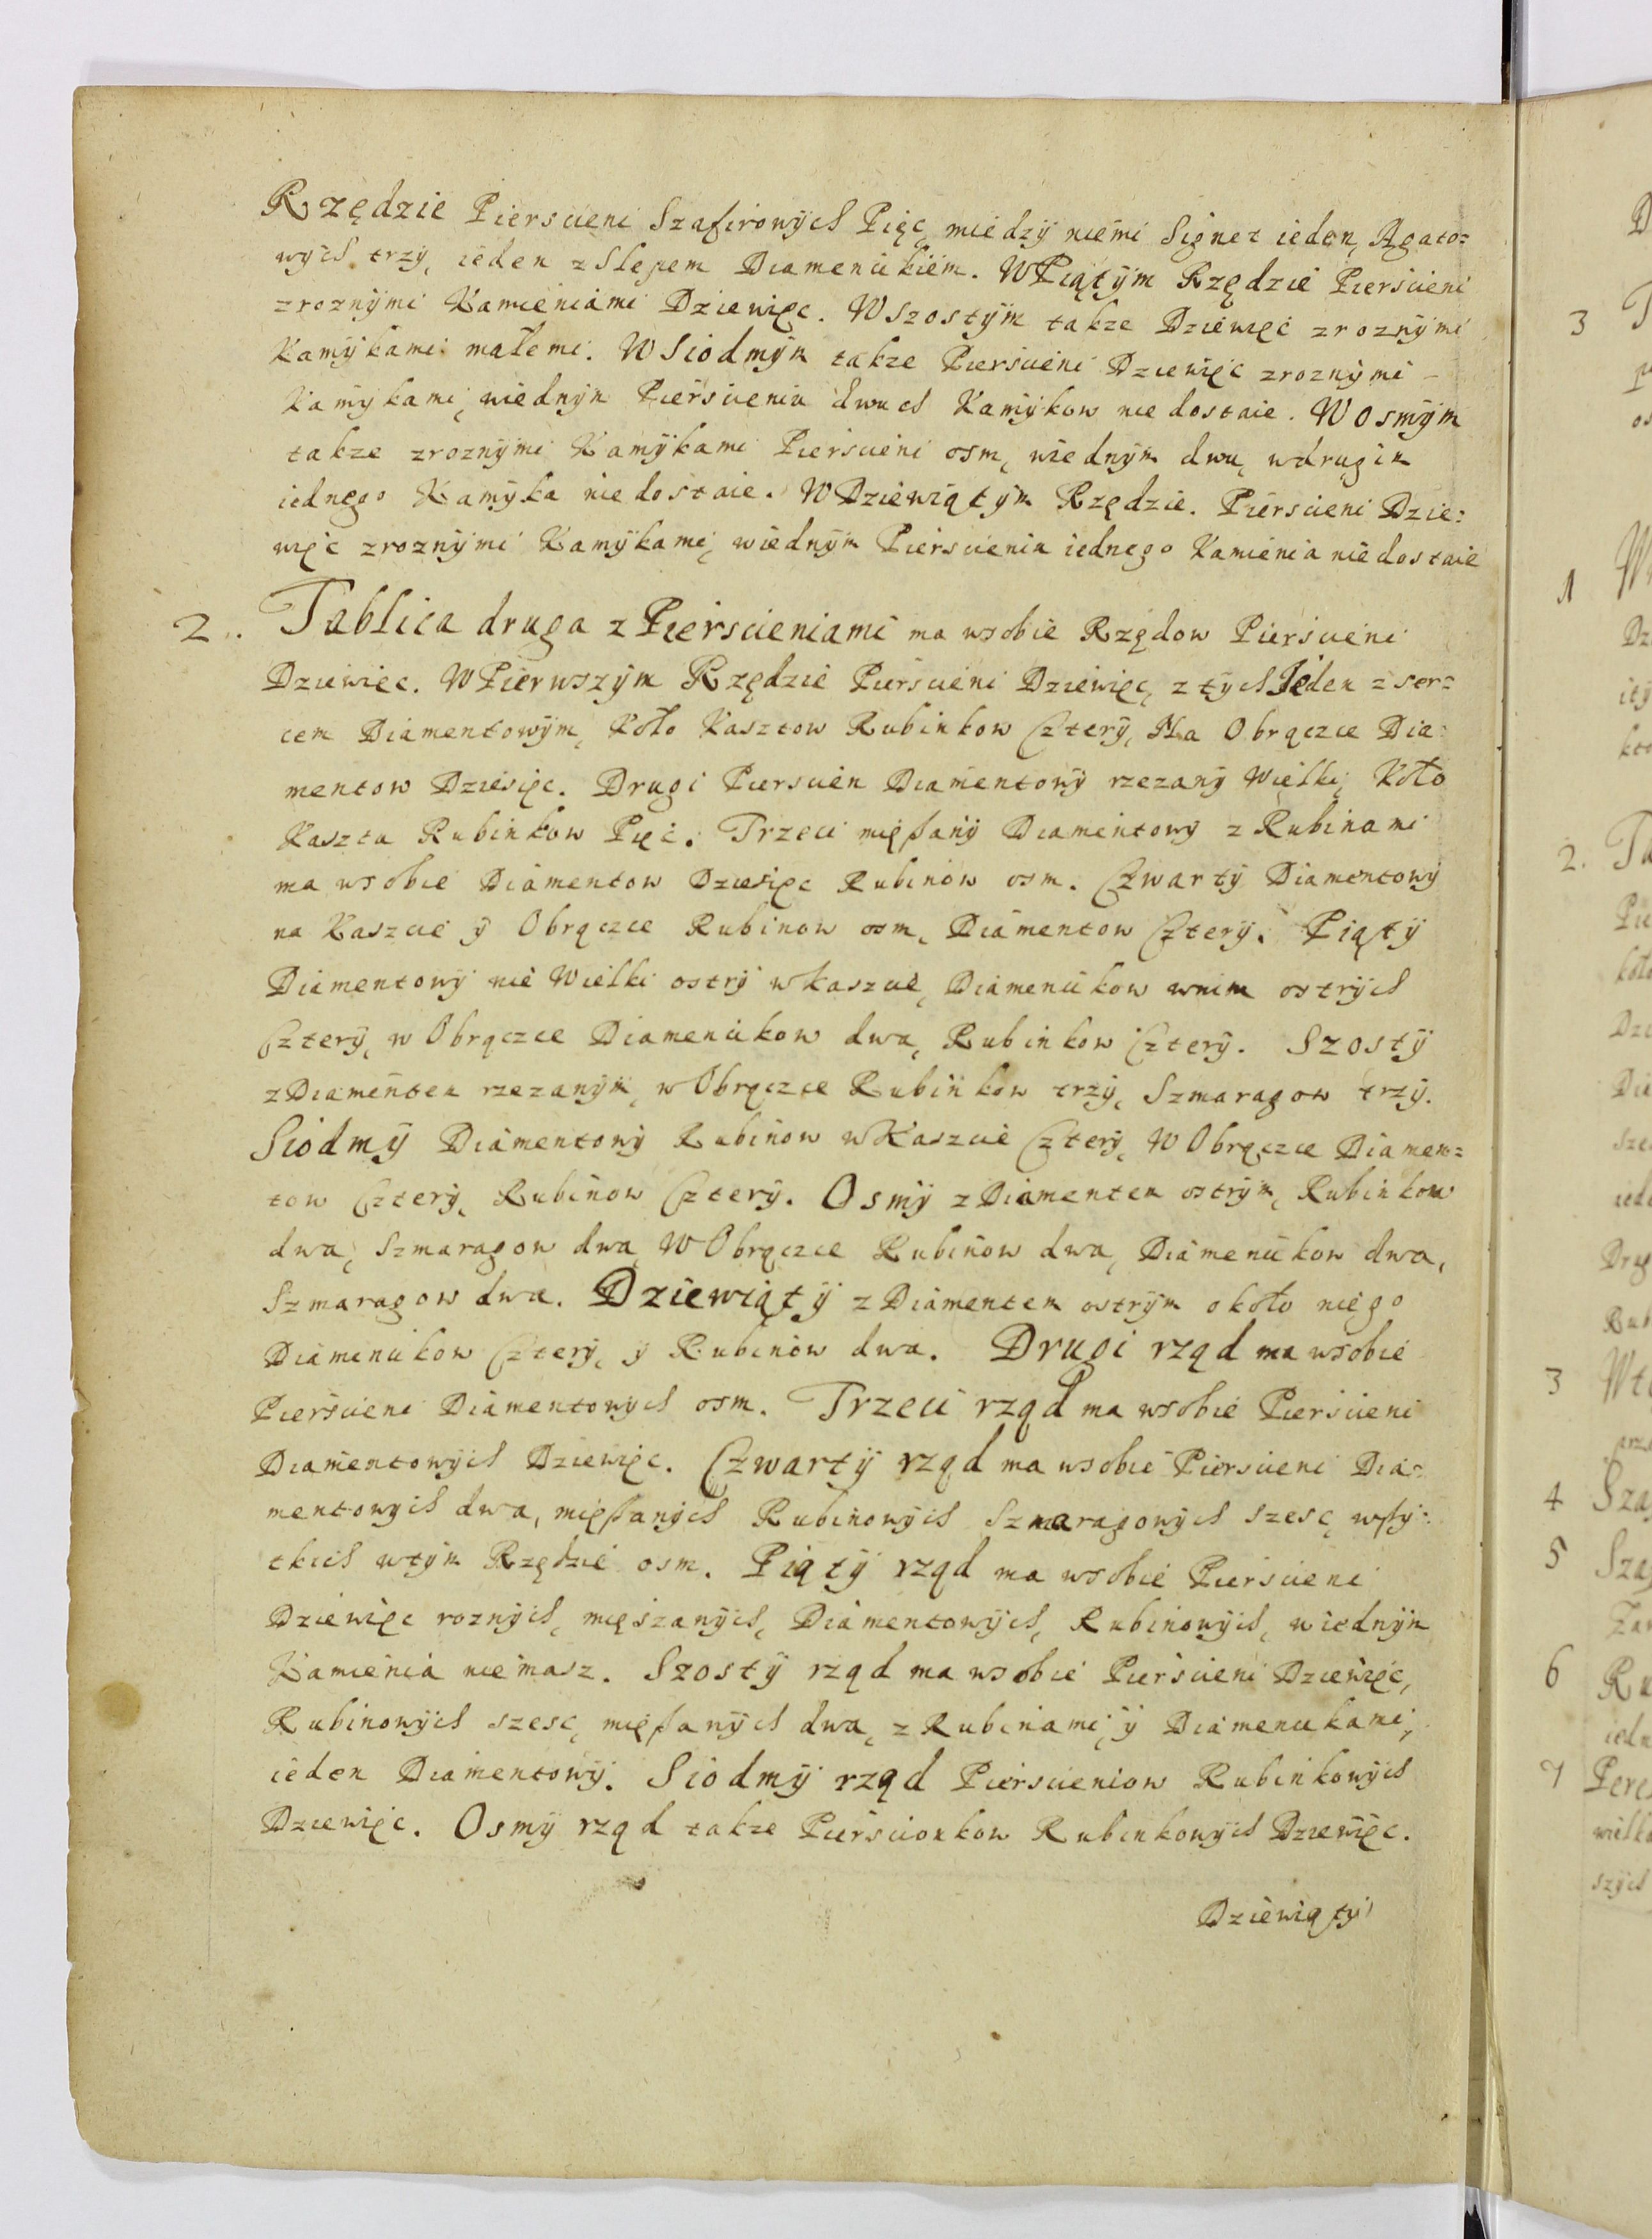 Rzędzie Pierscieni Szafirowych Pięc, miedzy niemi Signet ieden, Agato=
wych trzy, ieden z Slepem Diamencikiem. W Piątym Rzędzie Pierscieni
z roznymi Kamieniami Dziewięc. W Szostym takze Dziewięc z roznymi
Kamykami małemi. W Siodmym takze Pierscieni Dziewięc z roznymi –
Kamykami, wiednym Piersicieniu dwuch Kamykow nie dostaie. W Osmym
takze z roznymi Kamykami Pierscieni osm, wiednym dwu, wdrugim
iednego Kamyka niedostaie. W Dziewiątym Rzędzie. Pierscieni Dzie=
więc z roznymi Kamykami, wiednym Pierscieniu iednego Kamienia niedostaie
2. Tablica druga z Pierscieniami ma wsobie Rzędow Piersicieni
Dziewięc. W Pierwszym Rzędzie Piersicieni Dziewięc, z tych Jeden z ser=
cem Diamentowym, Koło Kasztow Rubinkow Cztery, Na Obrączce Dia=
mentow Dziesięc. Drugi Pierscien Diamentowy rzezany Wielki, Koło
Kaszta Rubinkow Pięc. Trzeci mięſany Diamentowy z Rubinami
ma wsobie Diamentow Dziesięc Rubinow osm. Czwarty Diamentowy
na Kaszcie y Obrączce Rubinow osm, Diamentow Cztery. Piąty
Diamentowy nie Wielki ostry wkaszcie, Diamencikow wnim ostrych
Cztery, w Obrączce Diamencikow dwa, Rubinkow Cztery. Szosty
z Diamentem rzezanym, w Obrączce Rubinkow trzy, Szmaragow trzy.
Siodmy Diamentowy Rubinow wKaszcie Cztery, W Obrączce Diamen=
tow Cztery, Rubinow Cztery. Osmy z Diamentem ostrym, Rubinkow
dwa, Szmaragow dwa, W Obrączce Rubinow dwa, Diamencikow dwa,
Szmaragow dwa. Dziewiąty z Diamentem ostrym około niego
Diamencikow Cztery, y Rubinow dwa. Drugi rząd ma wsobie
Piersicieni Diamentowych osm. Trzeci rząd ma wsobie Piersicieni
Diamentowych Dziewięc. Czwarty rząd ma wsobie Piersicieni Dia=
mentowych dwa, mięſanych Rubinowych Szmaragowych szesc, wſy=
tkich wtym Rzędzie osm. Piąty rząd ma wsobie Piersicieni
Dziewięc roznych, mięszanych, Diamentowych, Rubinowych, wiednym
Kamienia niemasz. Szosty rząd ma wsobie Piersicieni Dziewięc,
Rubinowych szesc, mięſanych dwa, z Rubinami, y Diamencikami,
ieden Diamentowy. Siodmy rząd Pierscieniow Rubinkowych
Dziewięc. Osmy rząd takze Piersicionkow Rubinkowych Dziewięc.
Dziewiąty
3
1
2.
3
4
5
6
7